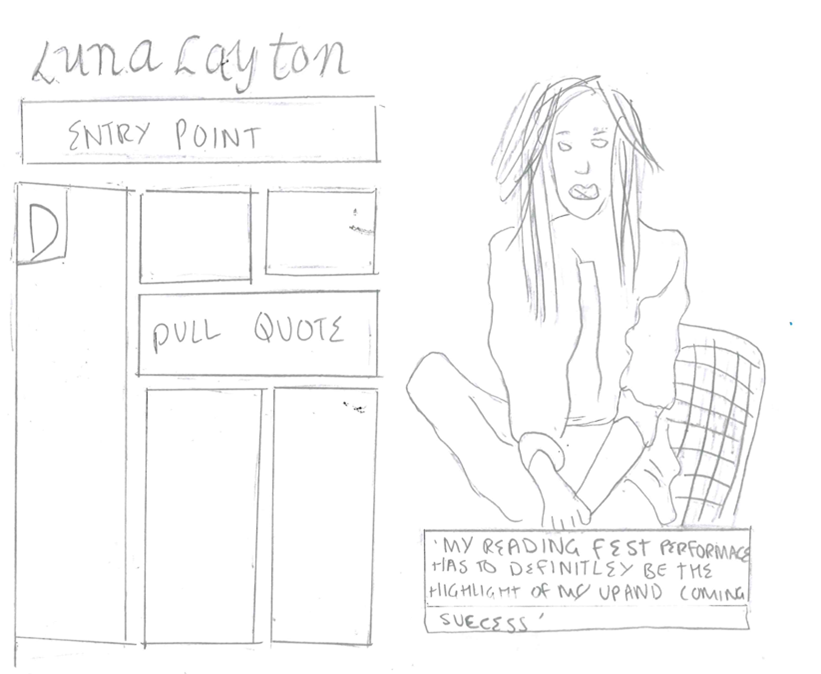 Luna Layton
ENTRY POINT
D
PULL QUOTE
'MY READING FEST PERFORMACE
HAS TO DEFINITLEY BE THE
HIGHLIGHT OF MY UP AND COMING
SUECESS'